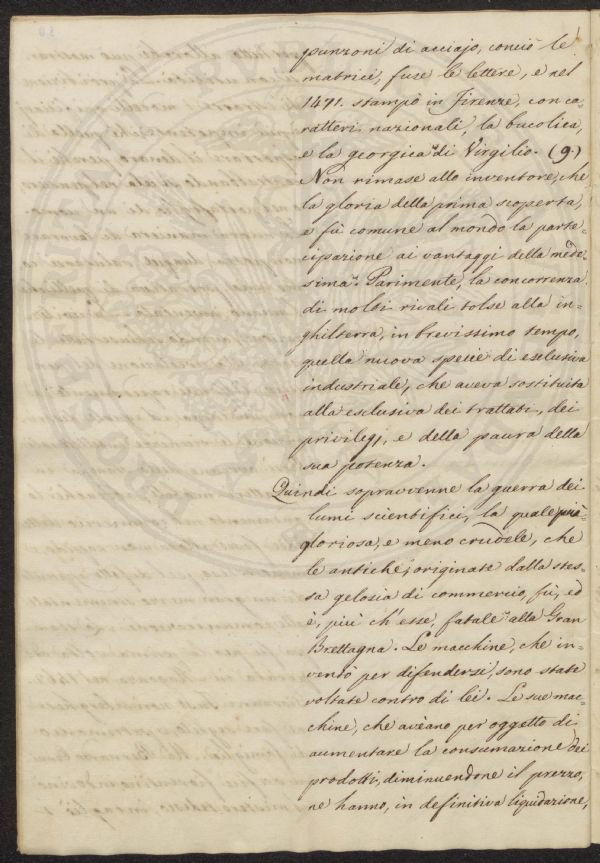 punzoni di acciajo, conciò le
matrici, fuse le lettere, e nel
1471. stampò in Firenze, con ca-
ratteri nazionali, la bucolica,
e la georgica di Virgilio. (9)
Non rimase allo inventore, che
la gloria della prima scoperta,
e fù comune al mondo la parte-
cipazione ai vantaggi della mede-
sima. Parimente, la concorrenza
di molti rivali tolse alla in-
ghilterra, in brevissimo tempo,
quella nuova specie di esclusiva
industriale, che aveva sostituita
alla esclusiva dei trattati, dei
privilegj, e della paura della
sua potenza.
Quindi sopravvenne la guerra dei
lumi scientifici, la quale più
gloriosa, e meno crudele, che
le antiche, originate dalla stes-
sa gelosia di commercio, fù, ed
è, più ch'esse, fatale alla Gran
Brettagna. Le macchine, che in-
ventò per difendersi, sono state
voltate contro di lei. Le sue mac-
chine, che avèano per oggetto di
aumentare la consumazione dei
prodotti, diminuendone il prezzo,
ne hanno, in definitiva liquidazione,